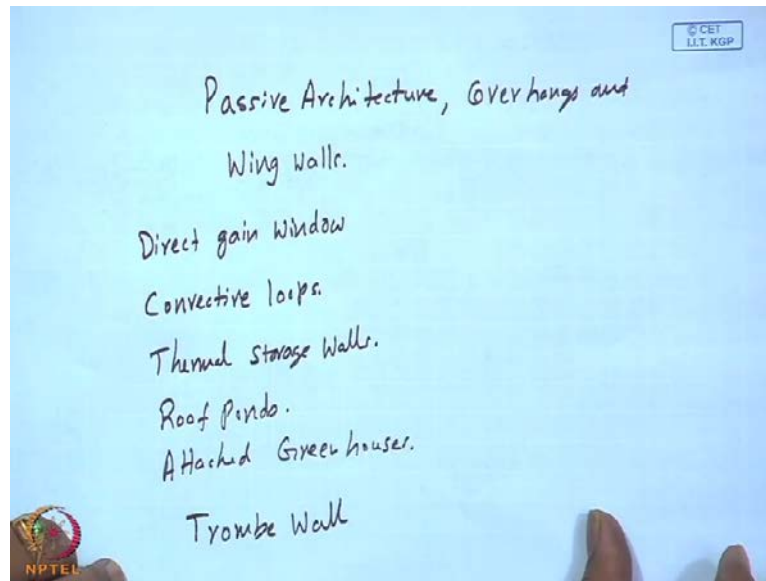 © CET
I.I.T. KGP
Passive Architecture, Overhangs and
Wing Walls.
Direct gain Window
Convective loops.
Thermal Storage Walls.
Roof Ponds.
Attached Greenhouses.
Trombe Wall
NPTEL